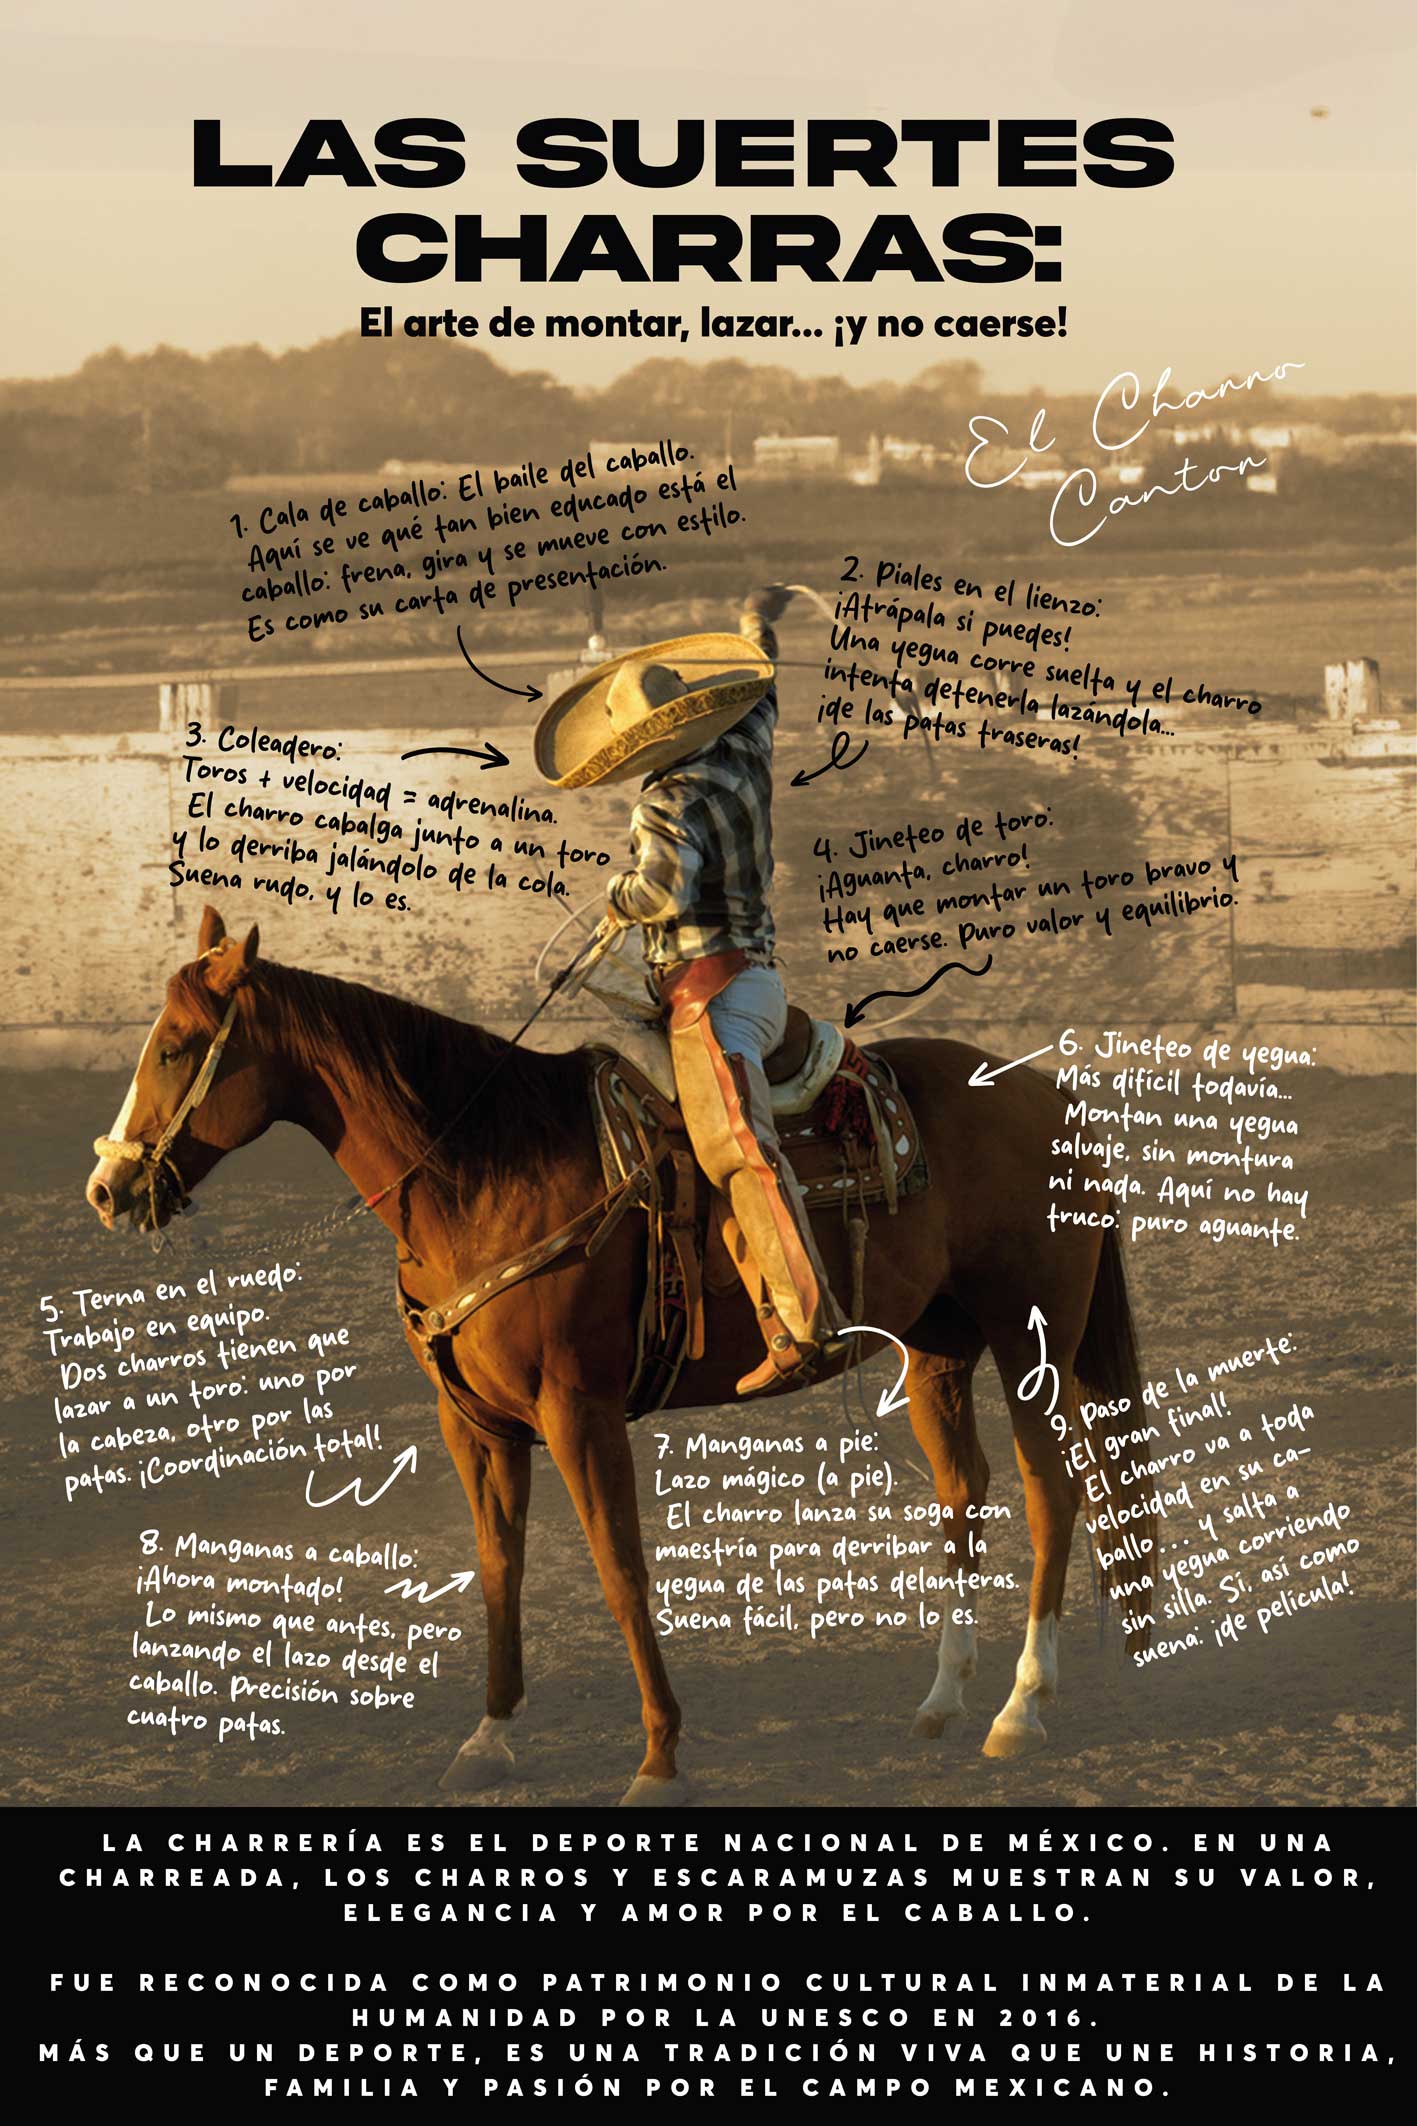 LAS SUERTES
CHARRAS:
El arte de montar, lazar... ¡y no caerse!
El Charro
Canton
1. Cala de caballo: El baile del caballo.
Aquí se ve qué tan bien educado está el
caballo: frena, gira y se mueve con estilo.
Es como su carta de presentación.
2. Piales en el lienzo:
¡Atrápala si puedes!
Una yegua corre suelta y el charro
intenta detenerla lazándola...
¡de las patas traseras!
3. Coleadero:
Toros + velocidad = adrenalina.
El charro cabalga junto a un toro
y lo derriba jalándolo de la cola.
Suena rudo, y lo es.
4. Jineteo de toro:
¡Aguanta, charro!
Hay que montar un toro bravo y
no caerse. Puro valor y equilibrio.
5. Terna en el ruedo:
Trabajo en equipo.
Dos charros tienen que
lazar a un toro: uno por
la cabeza, otro por las
patas. ¡Coordinación total!
6. Jineteo de yegua:
Más difícil todavía...
Montan una yegua
salvaje, sin montura
ni nada. Aquí no hay
truco: puro aguante.
7. Manganas a pie:
Lazo mágico (a pie).
El charro lanza su soga con
maestría para derribar a la
yegua de las patas delanteras.
Suena fácil, pero no lo es.
8. Manganas a caballo:
¡Ahora montado!
Lo mismo que antes, pero
lanzando el lazo desde el
caballo. Precisión sobre
cuatro patas.
9. Paso de la muerte:
¡El gran final!
El charro va a toda
velocidad en su ca-
ballo... y salta a
una yegua corriendo
sin silla. Sí, así como
suena: ¡de película!
LA CHARRERÍA ES EL DEPORTE NACIONAL DE MÉXICO. EN UNA
CHARREADA, LOS CHARROS Y ESCARAMUZAS MUESTRAN SU VALOR,
ELEGANCIA Y AMOR POR EL CABALLO.
FUE RECONOCIDA COMO PATRIMONIO CULTURAL INMATERIAL DE LA
HUMANIDAD POR LA UNESCO EN 2016.
MÁS QUE UN DEPORTE, ES UNA TRADICIÓN VIVA QUE UNE HISTORIA,
FAMILIA Y PASIÓN POR EL CAMPO MEXICANO.